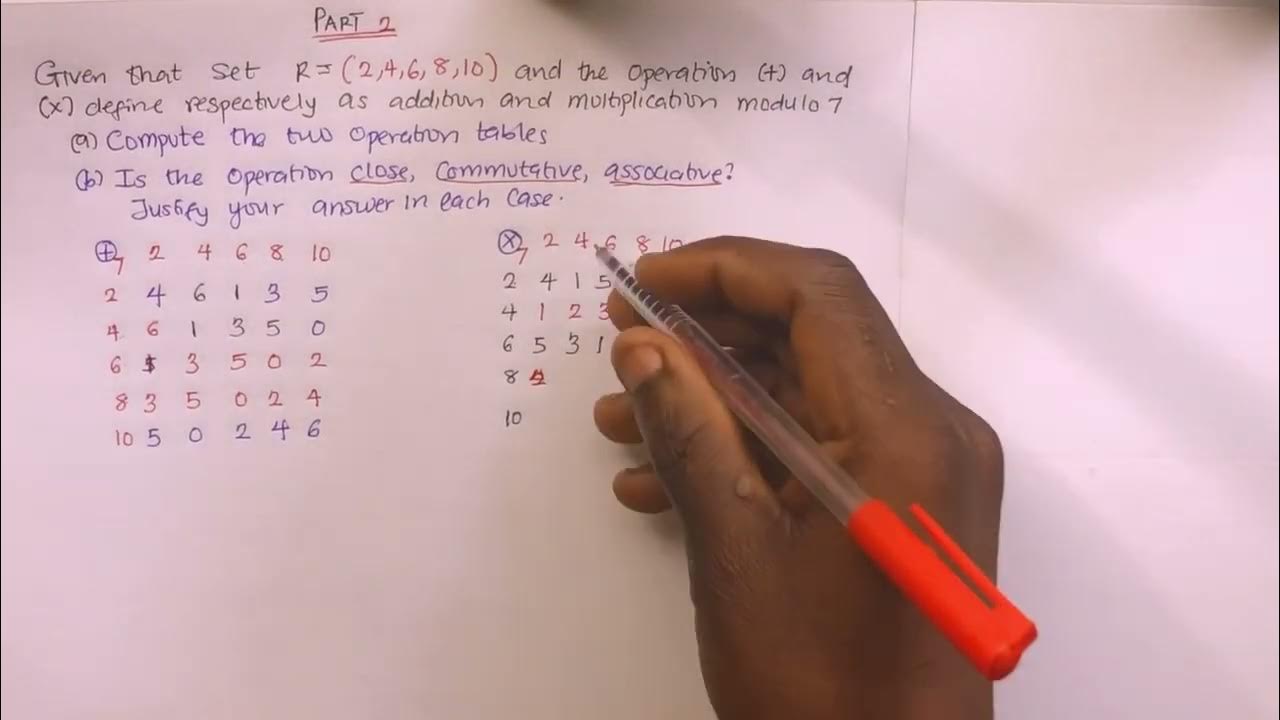 PART 2
Given that set R = (2,4,6,8,10) and the operation (+) and
(x) define respectively as addition and multiplication modulo 7
(a) Compute the two operation tables
(b) Is the operation close, Commutative, associative?
Justify your answer in each case.
⊕7 2 4 6 8 10
2 4 6 1 3 5
4 6 1 3 5 0
6 1 3 5 0 2
8 3 5 0 2 4
10 5 0 2 4 6
⊗7 2 4 6 8 10
2 4 1 5
4 1 2 3
6 5 3 1
8 2
10